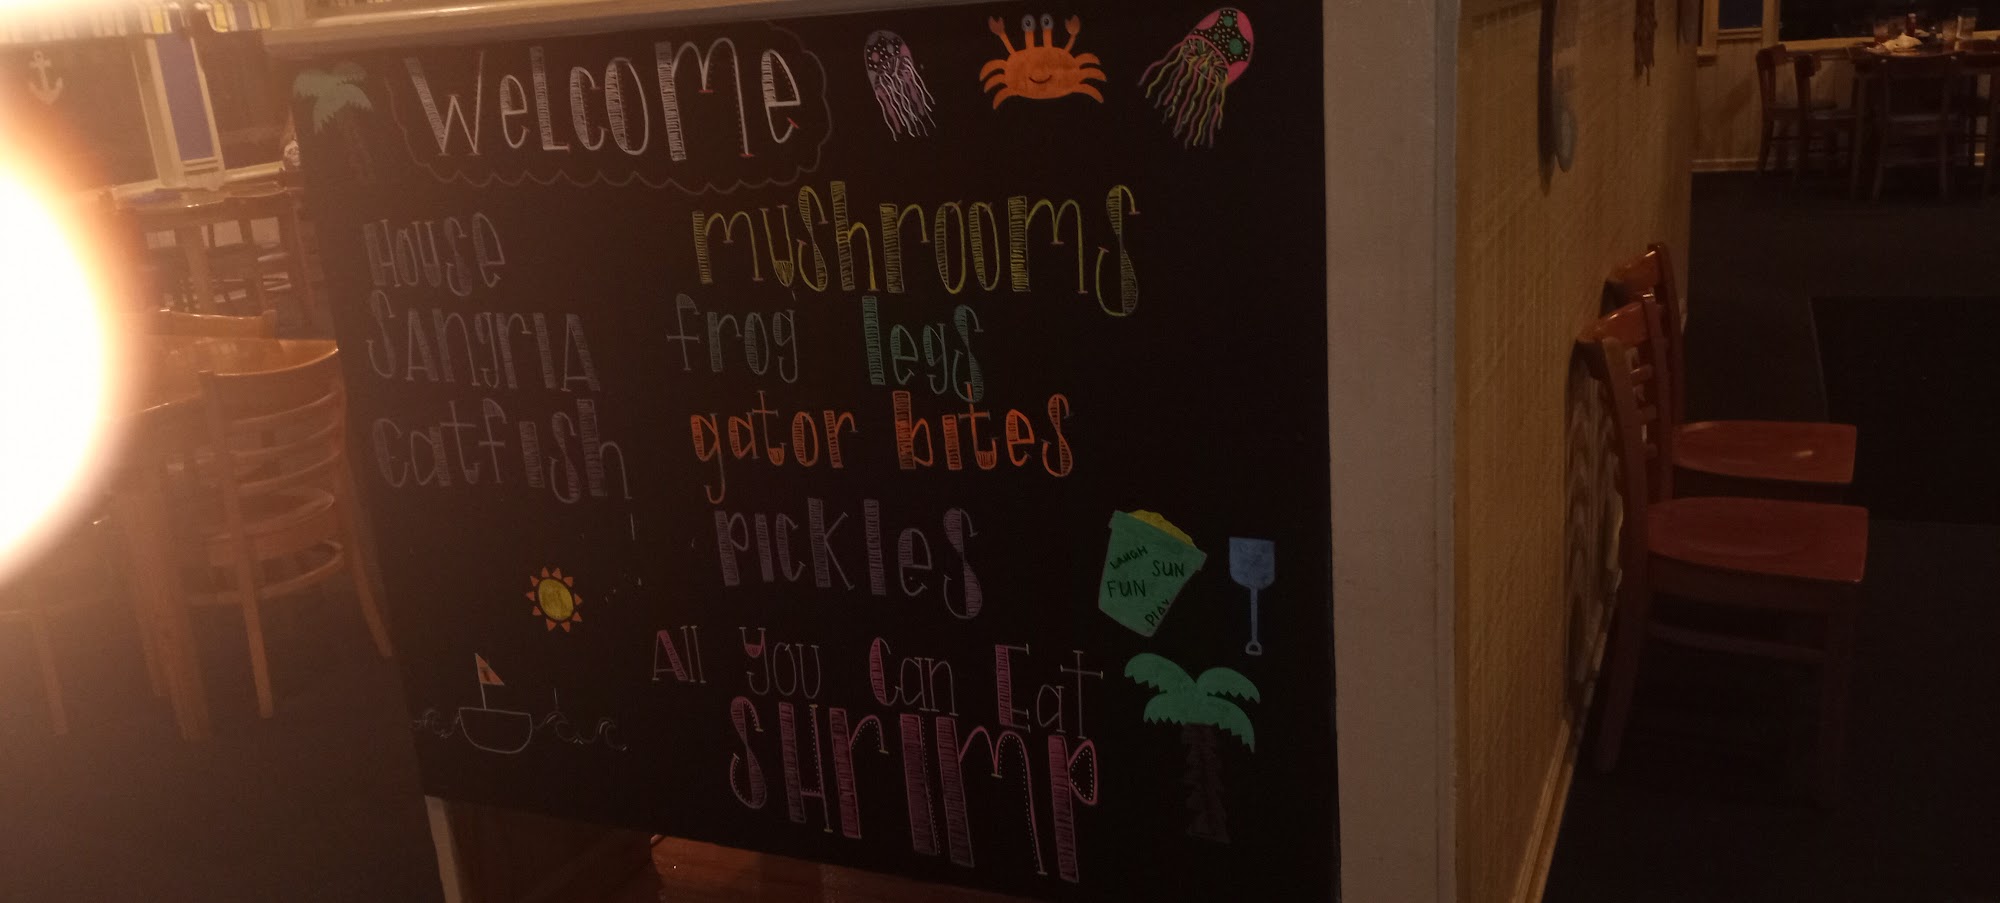 Welcome
House
Sangria
Catfish
mushrooms
frog legs
gator bites
pickles
All You Can Eat
SHrimp
LAUGH
SUN
FUN
PLAY